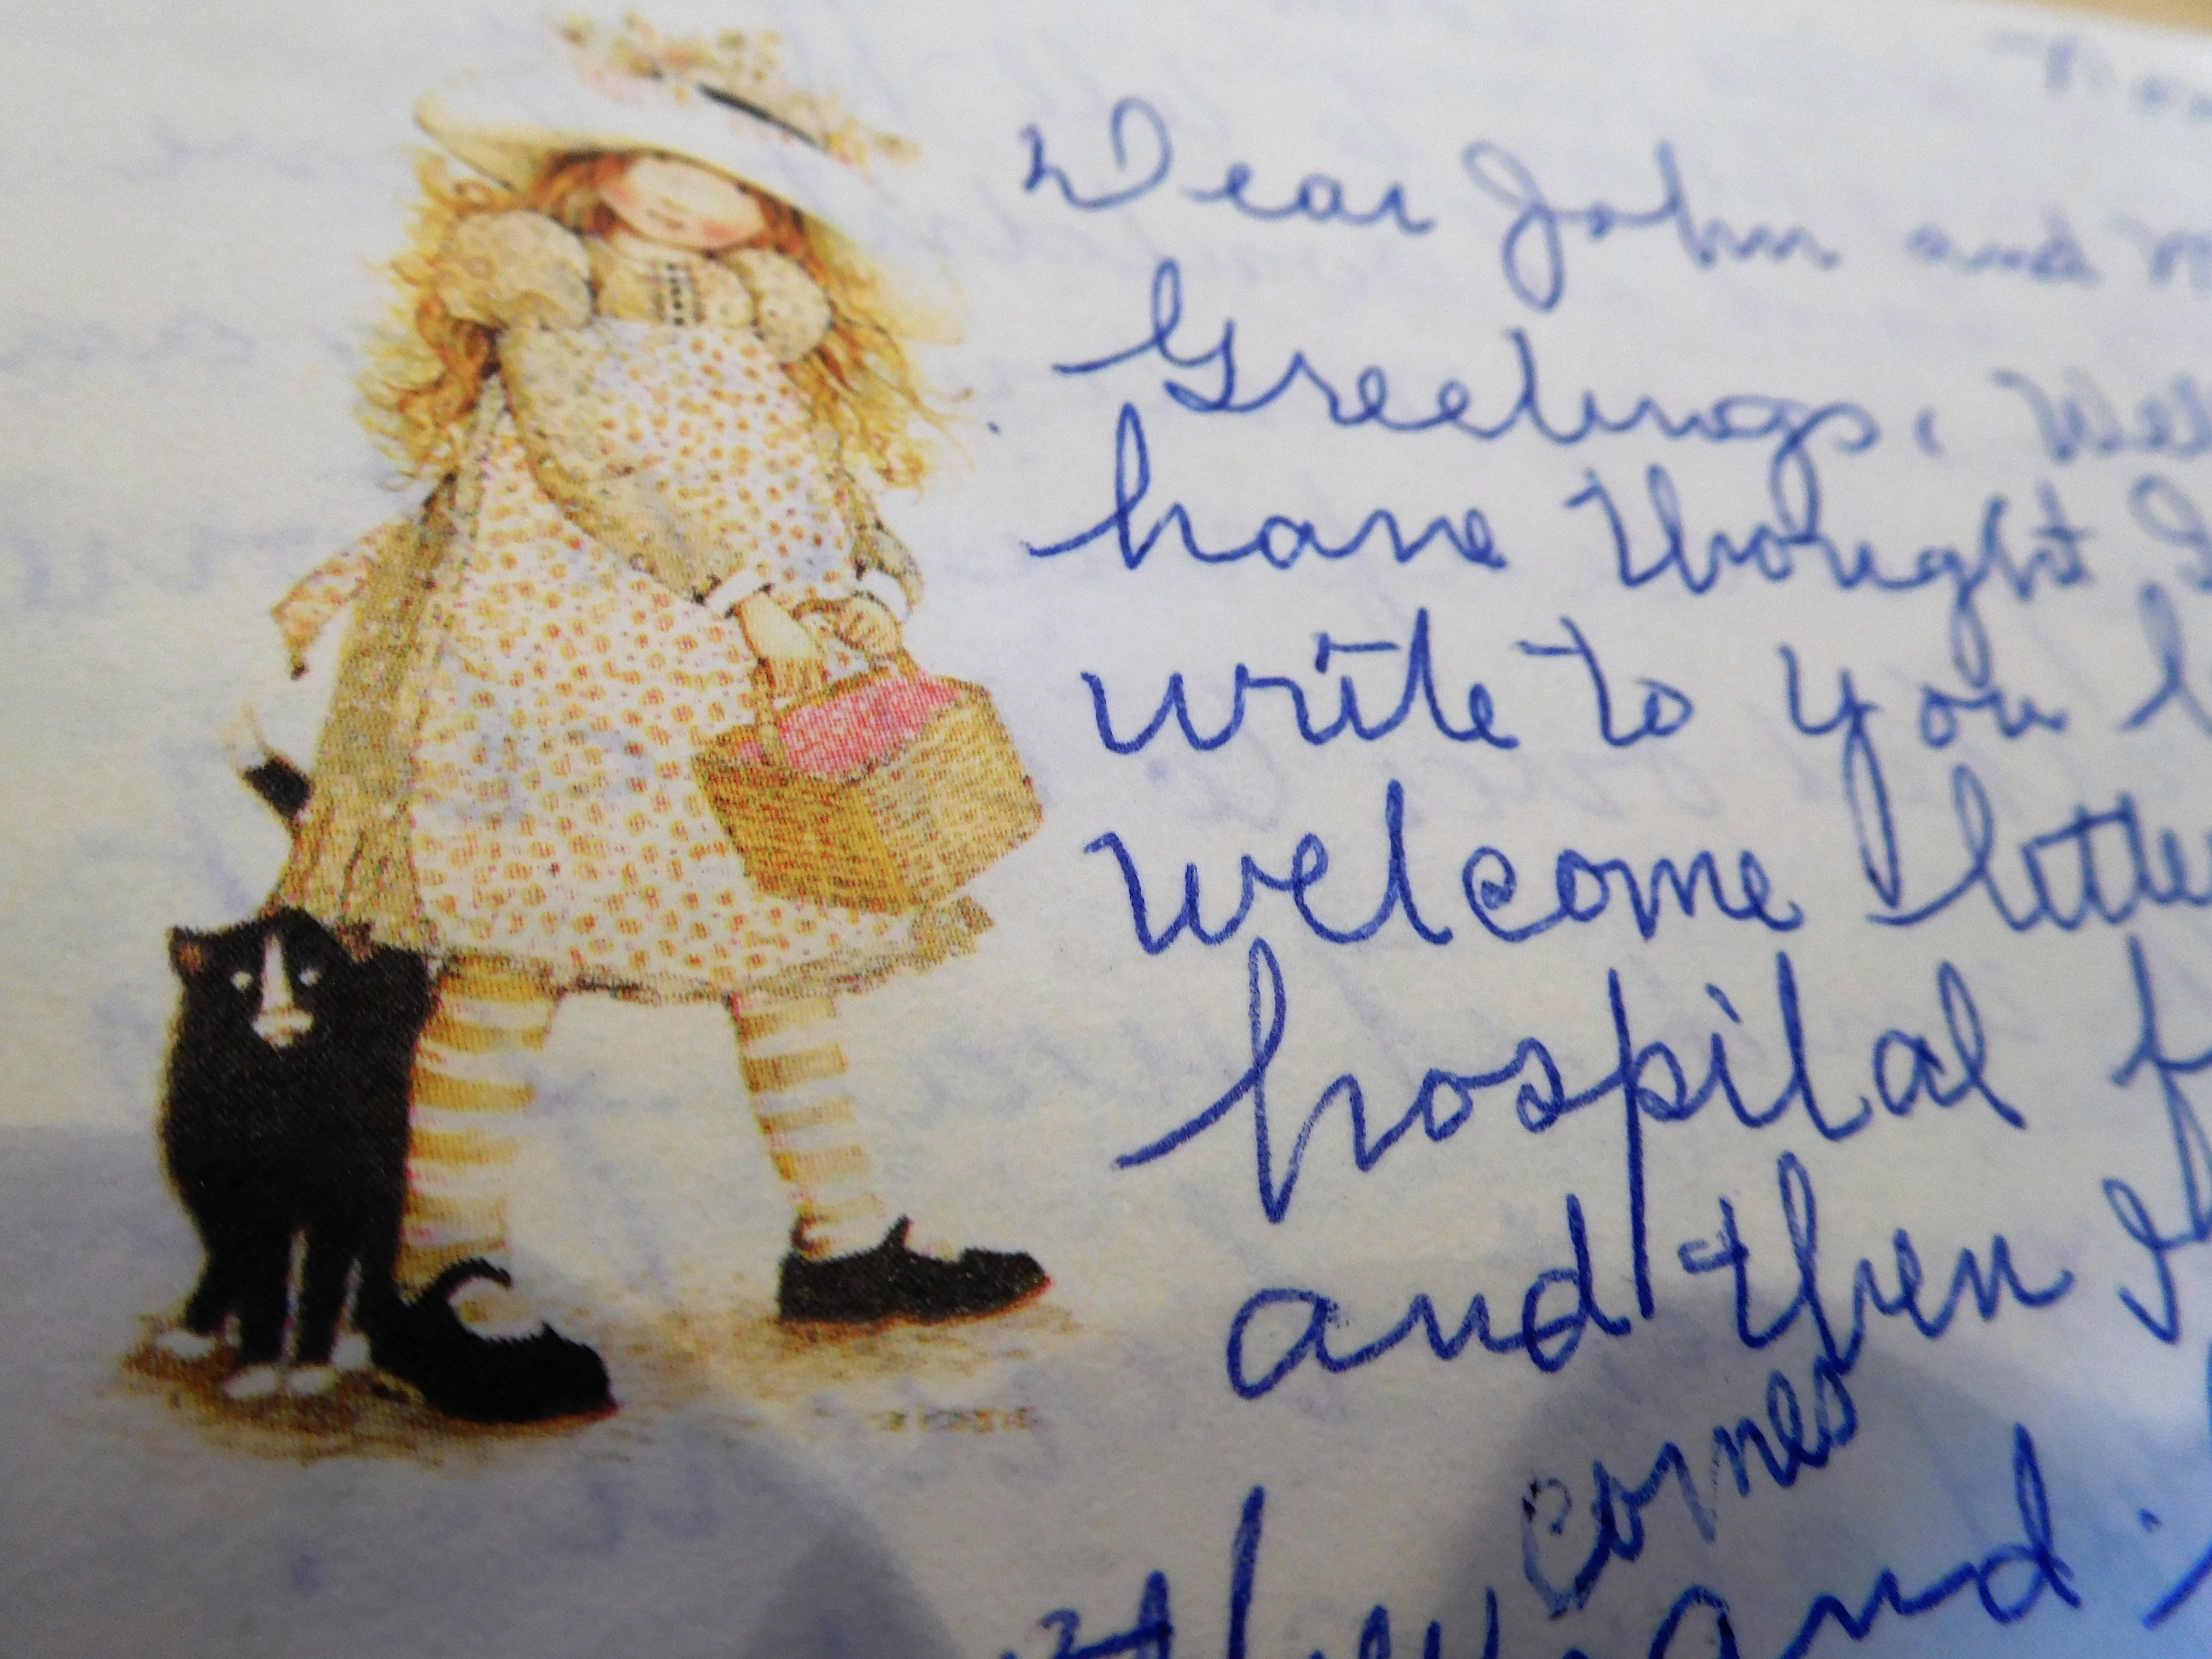 Dear John and
Greetings. Well
have thought I
write to you
welcome letter
hospital
and then I
comes
they and